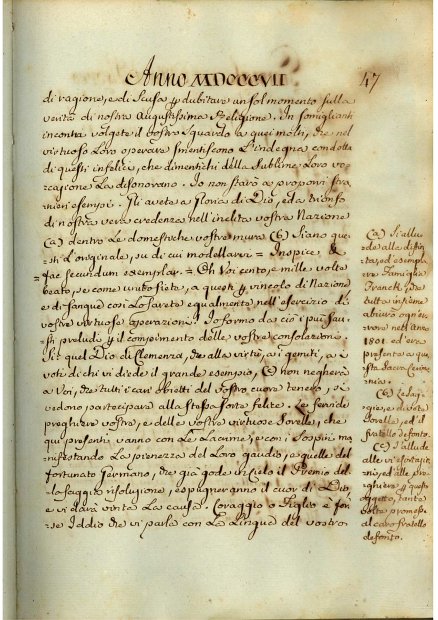 Anno MDCCCVII
47
di ragione, e di scusa p dubitare un sol momento sulla
verità di nostra Augustissima Religione. In somiglianti
incontra volgete il vostro sguardo a quei molti, che nel
virtuoso loro operare smentiscono l'indegna condotta
di questi infelici, che dimentichi della sublime loro vo-
cazione la disonorano. Io non starò a proporvi stra-
nieri esempi. Gli avete a gloria di Dio, ed a trionfo
di nostra vera credenza nell'inclita vostra Nazione
(a) dentro le domestiche vostre mura (b) Siano que-
sti l'originale, su di cui modellarvi = Inspice, &
= fac secundum exemplar = Oh Voi cento, e mille volte
beato, se come unito siete, a questi p vincolo di Nazione
e di sangue così lo sarete egualmente nell'esercizio di
vostre virtuose operazioni! Io formo da ciò i più fau-
sti preludi p il compimento delle vostre consolazioni.
Sì quel Dio di Clemenza, che alle virtù, ai gemiti, a i
voti di chi vi diede il grande esempio, (c) non negherà
a Voi, che tutti i cari obietti del vostro cuore tenero, si
vedono partecipare alla stessa sorte felice. Le fervide
preghiere vostre, e delle vostre virtuose Sorelle, che
qui presenti vanno con le Lacrime, e con i sospiri ma-
nifestando la pienezza del Loro gaudio, e quelle del
fortunato Germano, che già gode in Cielo il Premio del-
la saggia risoluzione, espugneranno il cuor di Dio,
e vi darà vinta la causa. Coraggio o Figlio è for-
se Iddio che vi parla con la Lingua del vostro
(a) Si allu-
de alla distin-
ta, ed esempla-
re Famiglia
Franck, che
tutta insieme
abiurò ogni er-
rore nell'anno
1801. ed era
presente a que-
sta Sacra Ceri-
monia.
(b) Le saj-
gie, e divote
Sorelle, ed il
fratello defonto.
(c) S'allude
alle virtù esercitate,
ed alle pre-
ghiere p questo
oggetto, tante
volte promesse
al caro fratello
defonto.